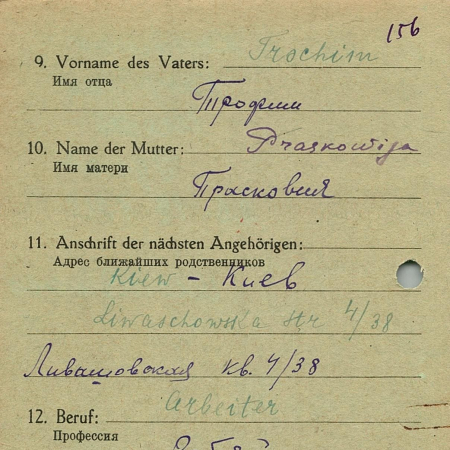 156
9. Vorname des Vaters: Trochim
Имя отца
Трофим
10. Name der Mutter: Praskowija
Имя матери
Прасковия
11. Anschrift der nächsten Angehörigen:
Адрес ближайших родственников
Kiew - Киев
Liwaschowska str 4/38
Ливашовская кв. 4/38
Arbeiter
12. Beruf:
Профессия